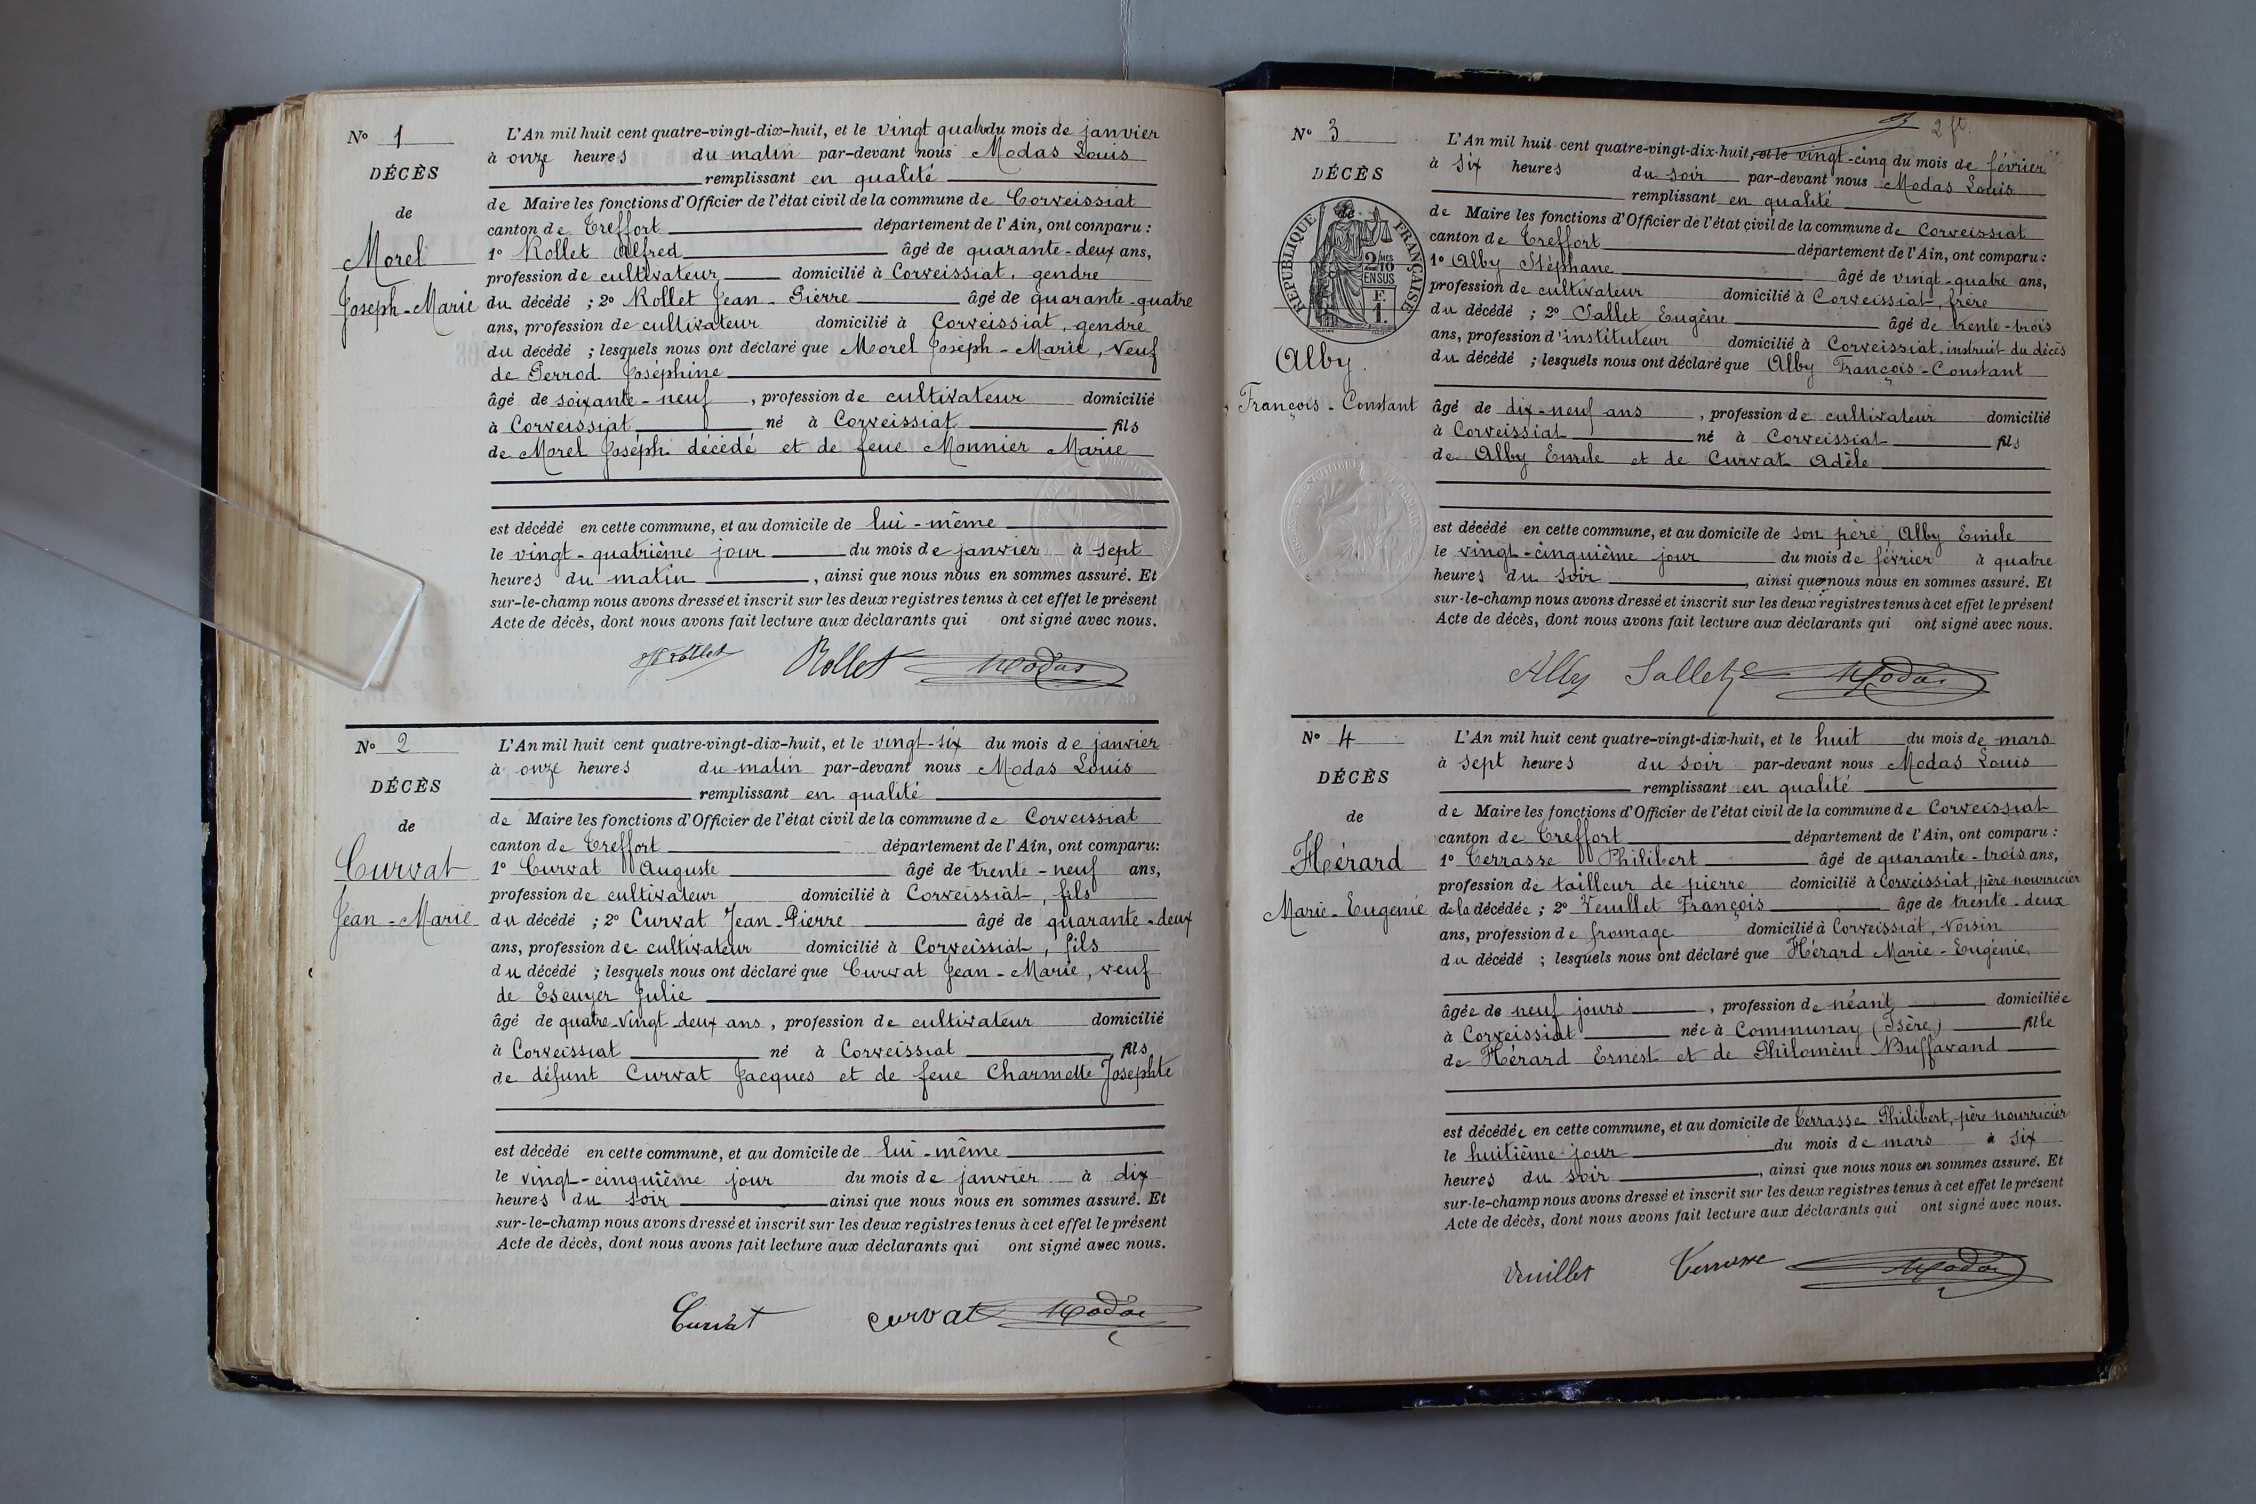 N° 1
DÉCÈS
de
Morel
Joseph-Marie
L'An mil huit cent quatre-vingt-dix-huit, et le vingt quatre du mois de janvier
à onze heures du matin par-devant nous Modas Louis
remplissant en qualité
de Maire les fonctions d'Officier de l'état civil de la commune de Corveissiat
canton de Treffort département de l'Ain, ont comparu :
1° Rollet Alfred âgé de quarante-deux ans,
profession de cultivateur domicilié à Corveissiat, gendre
du décédé ; 2° Rollet Jean-Pierre âgé de quarante-quatre
ans, profession de cultivateur domicilié à Corveissiat, gendre
du décédé ; lesquels nous ont déclaré que Morel Joseph-Marie, veuf
de Perrod Joséphine
âgé de soixante-neuf, profession de cultivateur domicilié
à Corveissiat né à Corveissiat fils
de Morel Joseph décédé et de feue Monnier Marie
est décédé en cette commune, et au domicile de lui-même
le vingt-quatrième jour du mois de janvier à sept
heures du matin, ainsi que nous nous en sommes assuré. Et
sur-le-champ nous avons dressé et inscrit sur les deux registres tenus à cet effet le présent
Acte de décès, dont nous avons fait lecture aux déclarants qui ont signé avec nous.
Rollet Rollet Modas
N° 2
DÉCÈS
de
Curvat
Jean-Marie
L'An mil huit cent quatre-vingt-dix-huit, et le vingt-six du mois de janvier
à onze heures du matin par-devant nous Modas Louis
remplissant en qualité
de Maire les fonctions d'Officier de l'état civil de la commune de Corveissiat
canton de Treffort département de l'Ain, ont comparu:
1° Curvat Auguste âgé de trente-neuf ans,
profession de cultivateur domicilié à Corveissiat, fils
du décédé ; 2° Curvat Jean-Pierre âgé de quarante-deux
ans, profession de cultivateur domicilié à Corveissiat, fils
du décédé ; lesquels nous ont déclaré que Curvat Jean-Marie, veuf
de Escuyer Julie
âgé de quatre-vingt-deux ans, profession de cultivateur domicilié
à Corveissiat né à Corveissiat fils
de défunt Curvat Jacques et de feue Charmette Josephte
est décédé en cette commune, et au domicile de lui-même
le vingt-cinquième jour du mois de janvier à dix
heures du soir ainsi que nous nous en sommes assuré. Et
sur-le-champ nous avons dressé et inscrit sur les deux registres tenus à cet effet le présent
Acte de décès, dont nous avons fait lecture aux déclarants qui ont signé avec nous.
Curvat curvat Modas
2 ft.
N° 3
DÉCÈS
de
RÉPUBLIQUE FRANÇAISE
2/10
EN SUS
F.
1.
Alby
François-Constant
L'An mil huit cent quatre-vingt-dix-huit, et le vingt-cinq du mois de février
à six heures du soir par-devant nous Modas Louis
remplissant en qualité
de Maire les fonctions d'Officier de l'état civil de la commune de Corveissiat
canton de Treffort département de l'Ain, ont comparu :
1° Alby Stéphane âgé de vingt-quatre ans,
profession de cultivateur domicilié à Corveissiat, frère
du décédé ; 2° Sallet Eugène âgé de trente-trois
ans, profession d'instituteur domicilié à Corveissiat, instruit du décès
du décédé ; lesquels nous ont déclaré que Alby François-Constant
âgé de dix-neuf ans, profession de cultivateur domicilié
à Corveissiat né à Corveissiat fils
de Alby Emile et de Curvat Adèle
est décédé en cette commune, et au domicile de son père, Alby Emile
le vingt-cinquième jour du mois de février à quatre
heures du soir, ainsi que nous nous en sommes assuré. Et
sur-le-champ nous avons dressé et inscrit sur les deux registres tenus à cet effet le présent
Acte de décès, dont nous avons fait lecture aux déclarants qui ont signé avec nous.
Alby Sallet Modas
N° 4
DÉCÈS
de
Hérard
Marie-Eugénie
L'An mil huit cent quatre-vingt-dix-huit, et le huit du mois de mars
à sept heures du soir par-devant nous Modas Louis
remplissant en qualité
de Maire les fonctions d'Officier de l'état civil de la commune de Corveissiat
canton de Treffort département de l'Ain, ont comparu :
1° Terrasse Philibert âgé de quarante-trois ans,
profession de tailleur de pierre domicilié à Corveissiat, père nourricier
de la décédée ; 2° Veuillet François âgé de trente-deux
ans, profession de fromage domicilié à Corveissiat, voisin
du décédé ; lesquels nous ont déclaré que Hérard Marie-Eugénie,
âgée de neuf jours, profession de néant domiciliée
à Corveissiat née à Communay (Isère) fille
de Hérard Ernest et de Philomène Buffavand
est décédée en cette commune, et au domicile de Terrasse Philibert, père nourricier
le huitième jour du mois de mars à six
heures du soir, ainsi que nous nous en sommes assuré. Et
sur-le-champ nous avons dressé et inscrit sur les deux registres tenus à cet effet le présent
Acte de décès, dont nous avons fait lecture aux déclarants qui ont signé avec nous.
Veuillet Terrasse Modas